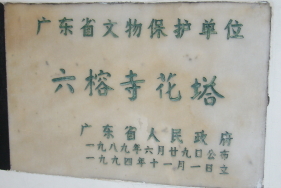 广东省文物保护单位
六榕寺花塔
广东省人民政府
一九八九年六月廿九日公布
一九九四年十一月一日立